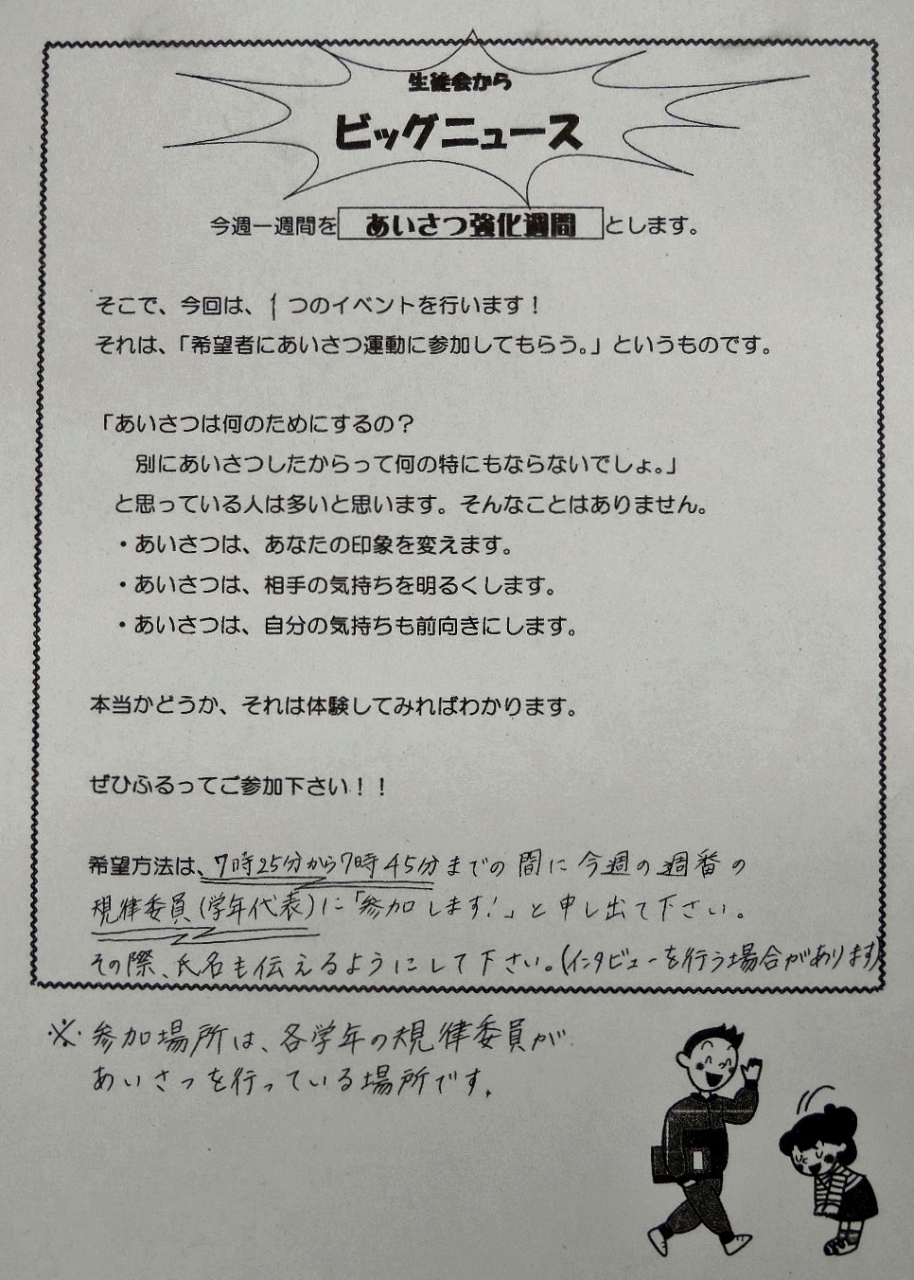 生徒会から
ビッグニュース
今週一週間をあいさつ強化週間とします。
そこで、今回は、1つのイベントを行います！
それは、「希望者にあいさつ運動に参加してもらう。」というものです。
「あいさつは何のためにするの？
別にあいさつしたからって何の特にもならないでしょ。」
と思っている人は多いと思います。そんなことはありません。
・あいさつは、あなたの印象を変えます。
・あいさつは、相手の気持ちを明るくします。
・あいさつは、自分の気持ちも前向きにします。
本当かどうか、それは体験してみればわかります。
ぜひふるってご参加下さい！！
希望方法は、7時25分から7時45分までの間に今週の週番の
規律委員(学年代表)に「参加します!」と申し出て下さい。
その際、氏名も伝えるようにして下さい。(インタビューを行う場合があります)
※参加場所は、各学年の規律委員が
あいさつを行っている場所です。